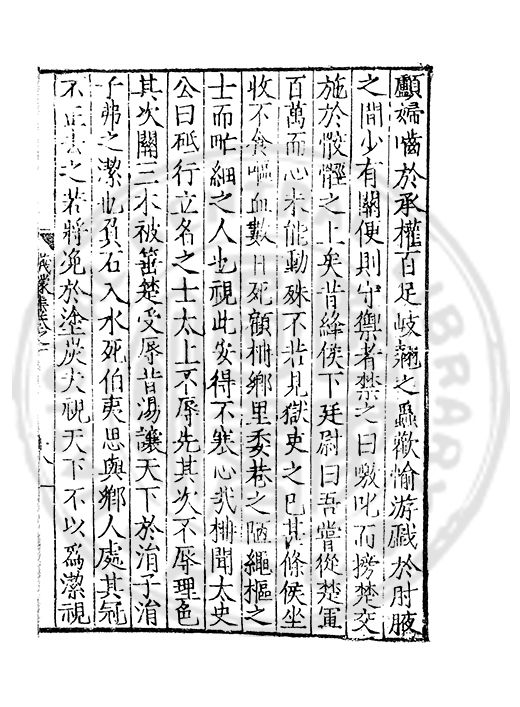 婦嚙於承權百足岐翹之蟲歡愉游戲於肘腋
之間少有關便則守禦者禁之曰嗷叱而搒楚交
施於骹之上矣昔絳侯下廷尉曰吾嘗從楚軍
百萬而心未能動殊不若見獄吏之已甚條侯坐
收不食嘔血數日死顧柟鄉里委巷之陋繩樞之
士而細之人也視此安得不塞心哉柟聞太史
公曰砥行立名之士太上不辱先其次不辱理色
其次關三木被箠楚受辱昔湯讓天下於涓子涓
子弗之潔也負石入水死伯夷思與鄉人處其冠
不正去之若將浼於塗炭夫視天下不以爲潔視
蠛蠓集卷之